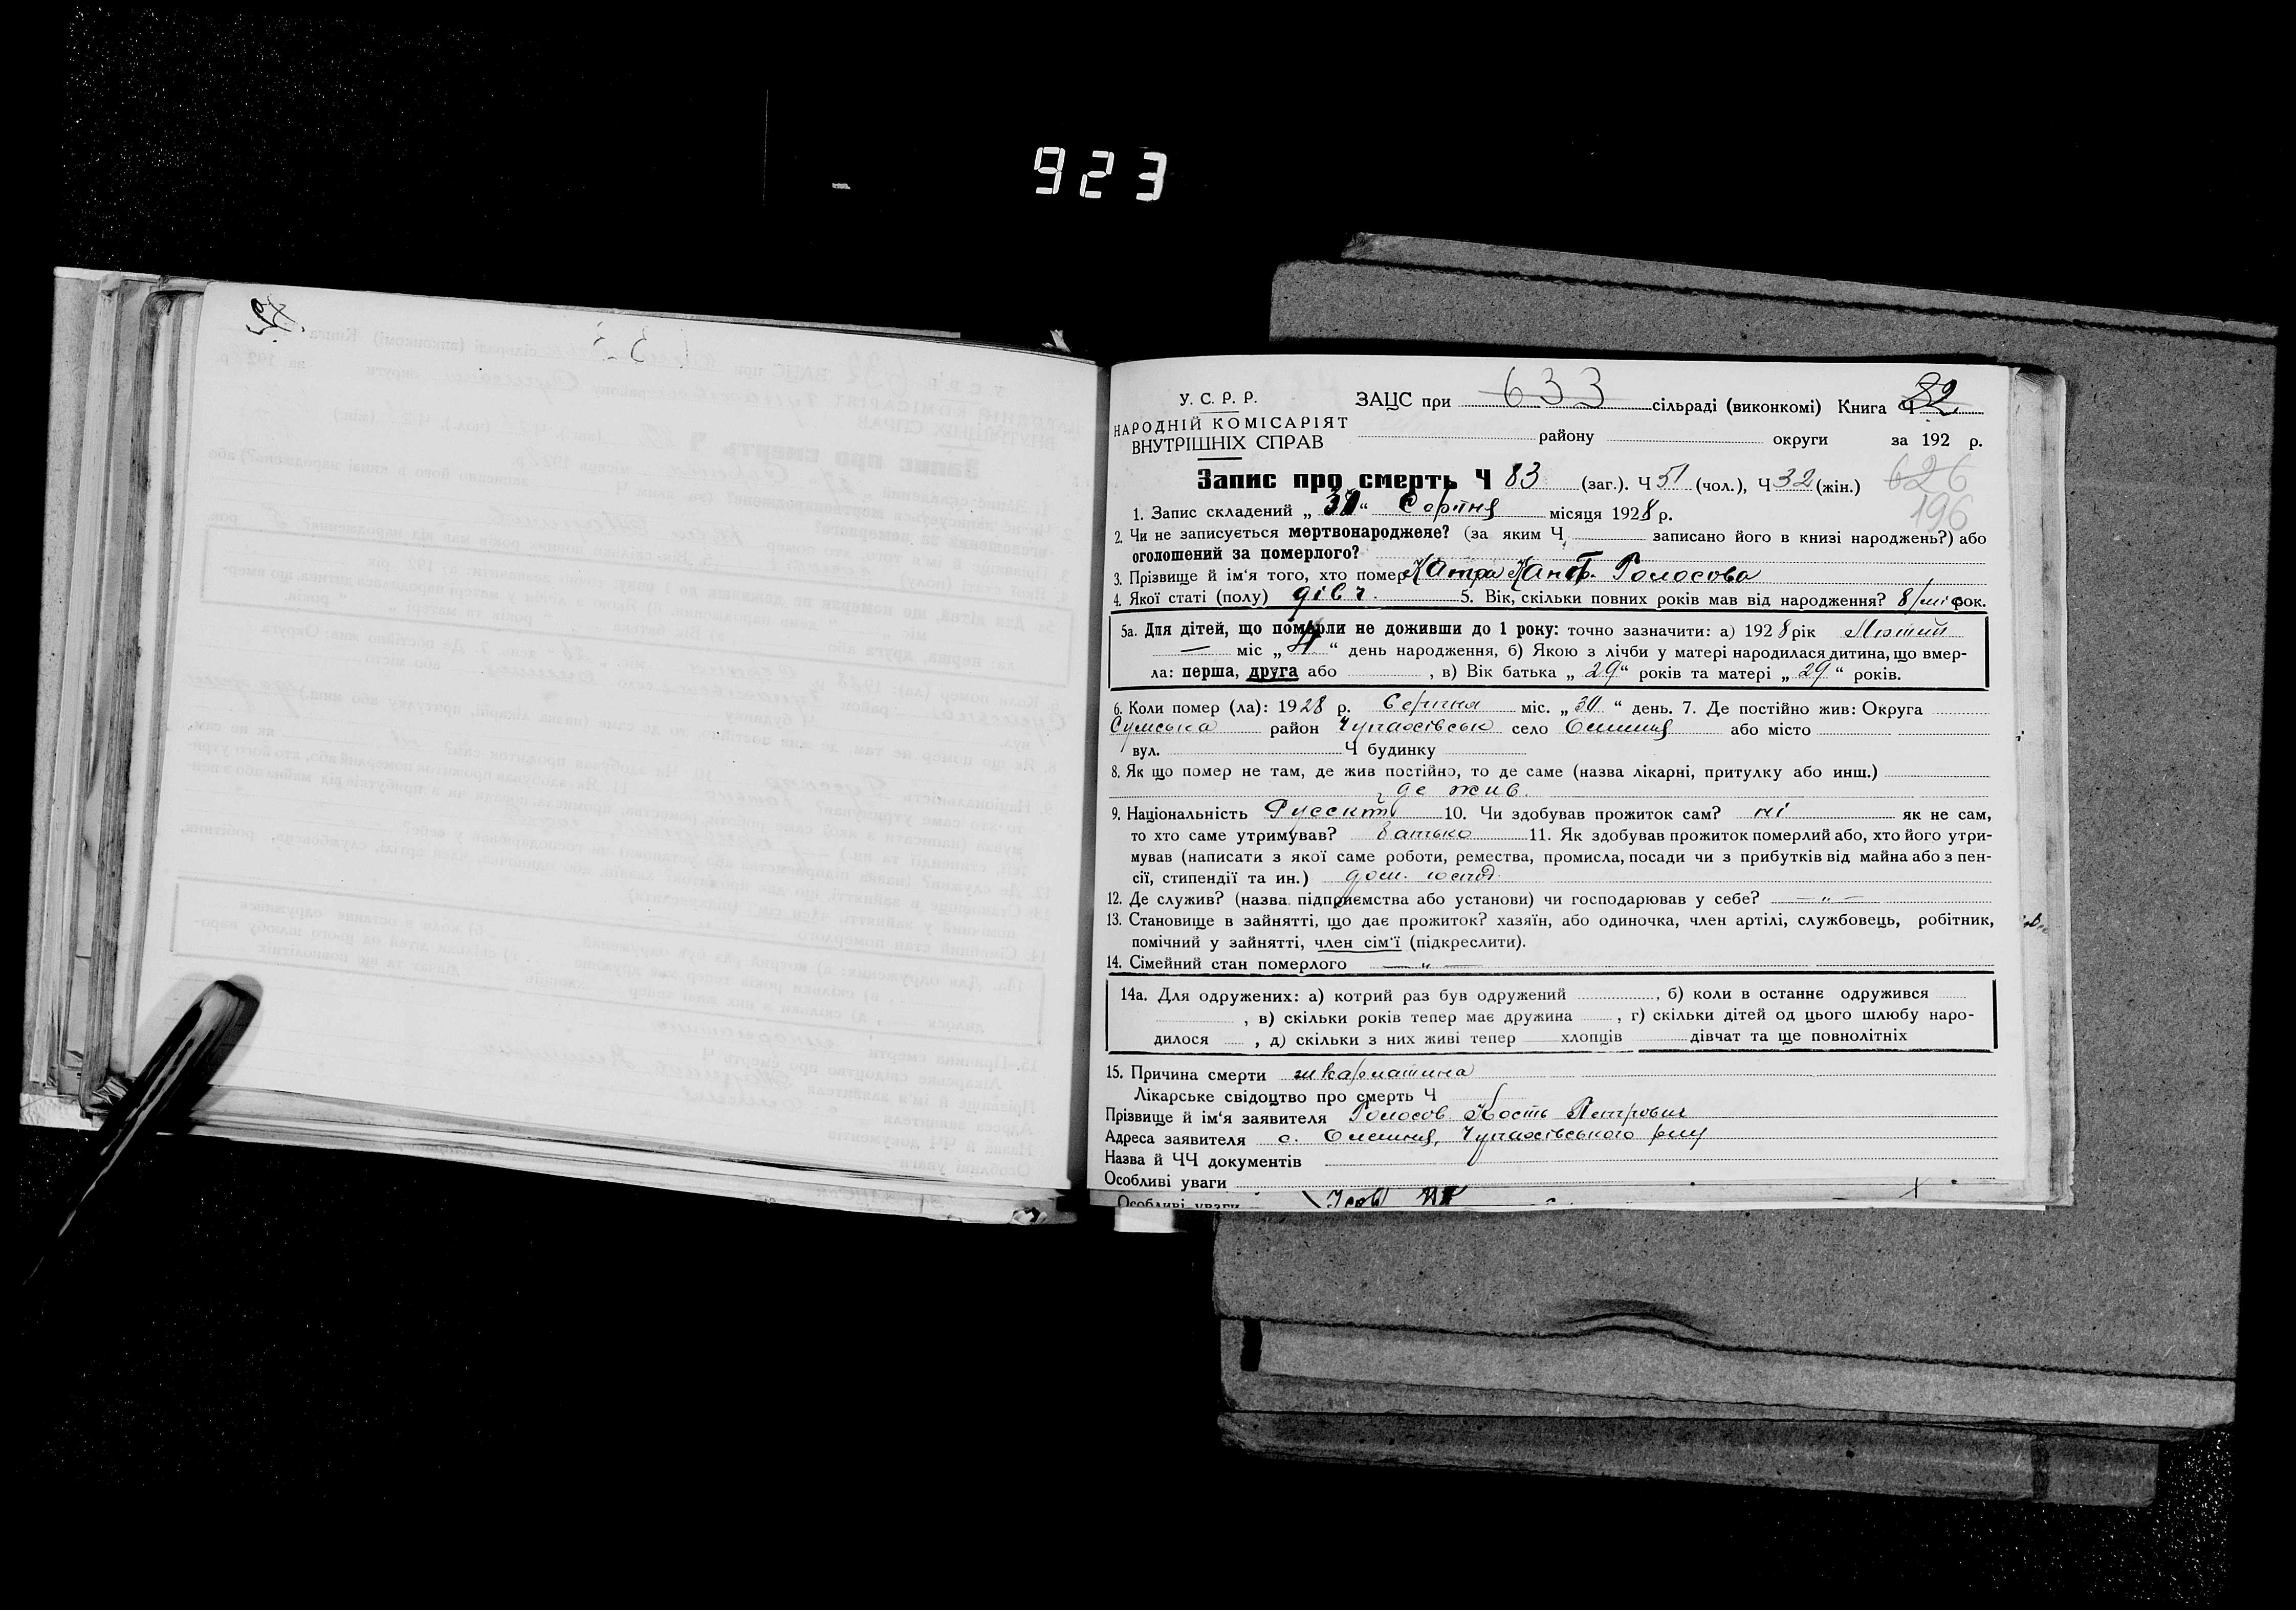 923
У. С. Р. Р.
НАРОДНІЙ КОМІСАРІЯТ
ВНУТРІШНІХ СПРАВ
ЗАЦС при 633 сільраді (виконкомі) Книга Ч 82
району округи за 192 р.
Запис про смерть Ч 83 (заг.). Ч 51 (чол.), Ч 32 (жін.)
626
196
1. Запис складений „ 31 “ Серпня місяця 1928 р.
2. Чи не записується мертвонароджене? (за яким Ч записано його в книзі народжень?) або
оголошений за померлого?
3. Прізвище й ім'я того, хто помер Голосова
4. Якої статі (полу) дівч. 5. Вік, скільки повних років мав від народження? 8/міс рок.
5а. Для дітей, що померли не доживши до 1 року: точно зазначити: а) 1928 рік Лютий
— міс „ 4 “ день народження, б) Якою з лічби у матері народилася дитина, що вмер-
ла: перша, друга або , в) Вік батька „ 29 “ років та матері „ 29 “ років.
6. Коли помер (ла): 1928 р. Серпня міс. „ 30 “ день. 7. Де постійно жив: Округа
Сумська район Чупахівськ село Олешня або місто
вул. Ч будинку
8. Як що помер не там, де жив постійно, то де саме (назва лікарні, притулку або инш.)
де жив.
9. Національність 10. Чи здобував прожиток сам? ні як не сам,
то хто саме утримував? батько 11. Як здобував прожиток померлий або, хто його утри-
мував (написати з якої саме роботи, ремества, промисла, посади чи з прибутків від майна або з пен-
сії, стипендії та ин.) дом. господ.
12. Де служив? (назва підприємства або установи) чи господарював у себе? — „ —
13. Становище в зайнятті, що дає прожиток? хазяїн, або одиночка, член артілі, службовець, робітник,
помічний у зайнятті, член сім'ї (підкреслити).
14. Сімейний стан померлого — „ —
14а. Для одружених: а) котрий раз був одружений , б) коли в останнє одружився
, в) скільки років тепер має дружина , г) скільки дітей од цього шлюбу наро-
дилося , д) скільки з них живі тепер хлопців дівчат та ще повнолітніх
15. Причина смерти шкарлатина
Лікарське свідоцтво про смерть Ч
Прізвище й ім'я заявителя Голосов Кость Петрович
Адреса заявителя с. Олешня, Чупахівського р-ну
Назва й ЧЧ документів
Особливі уваги
Особливі уваги